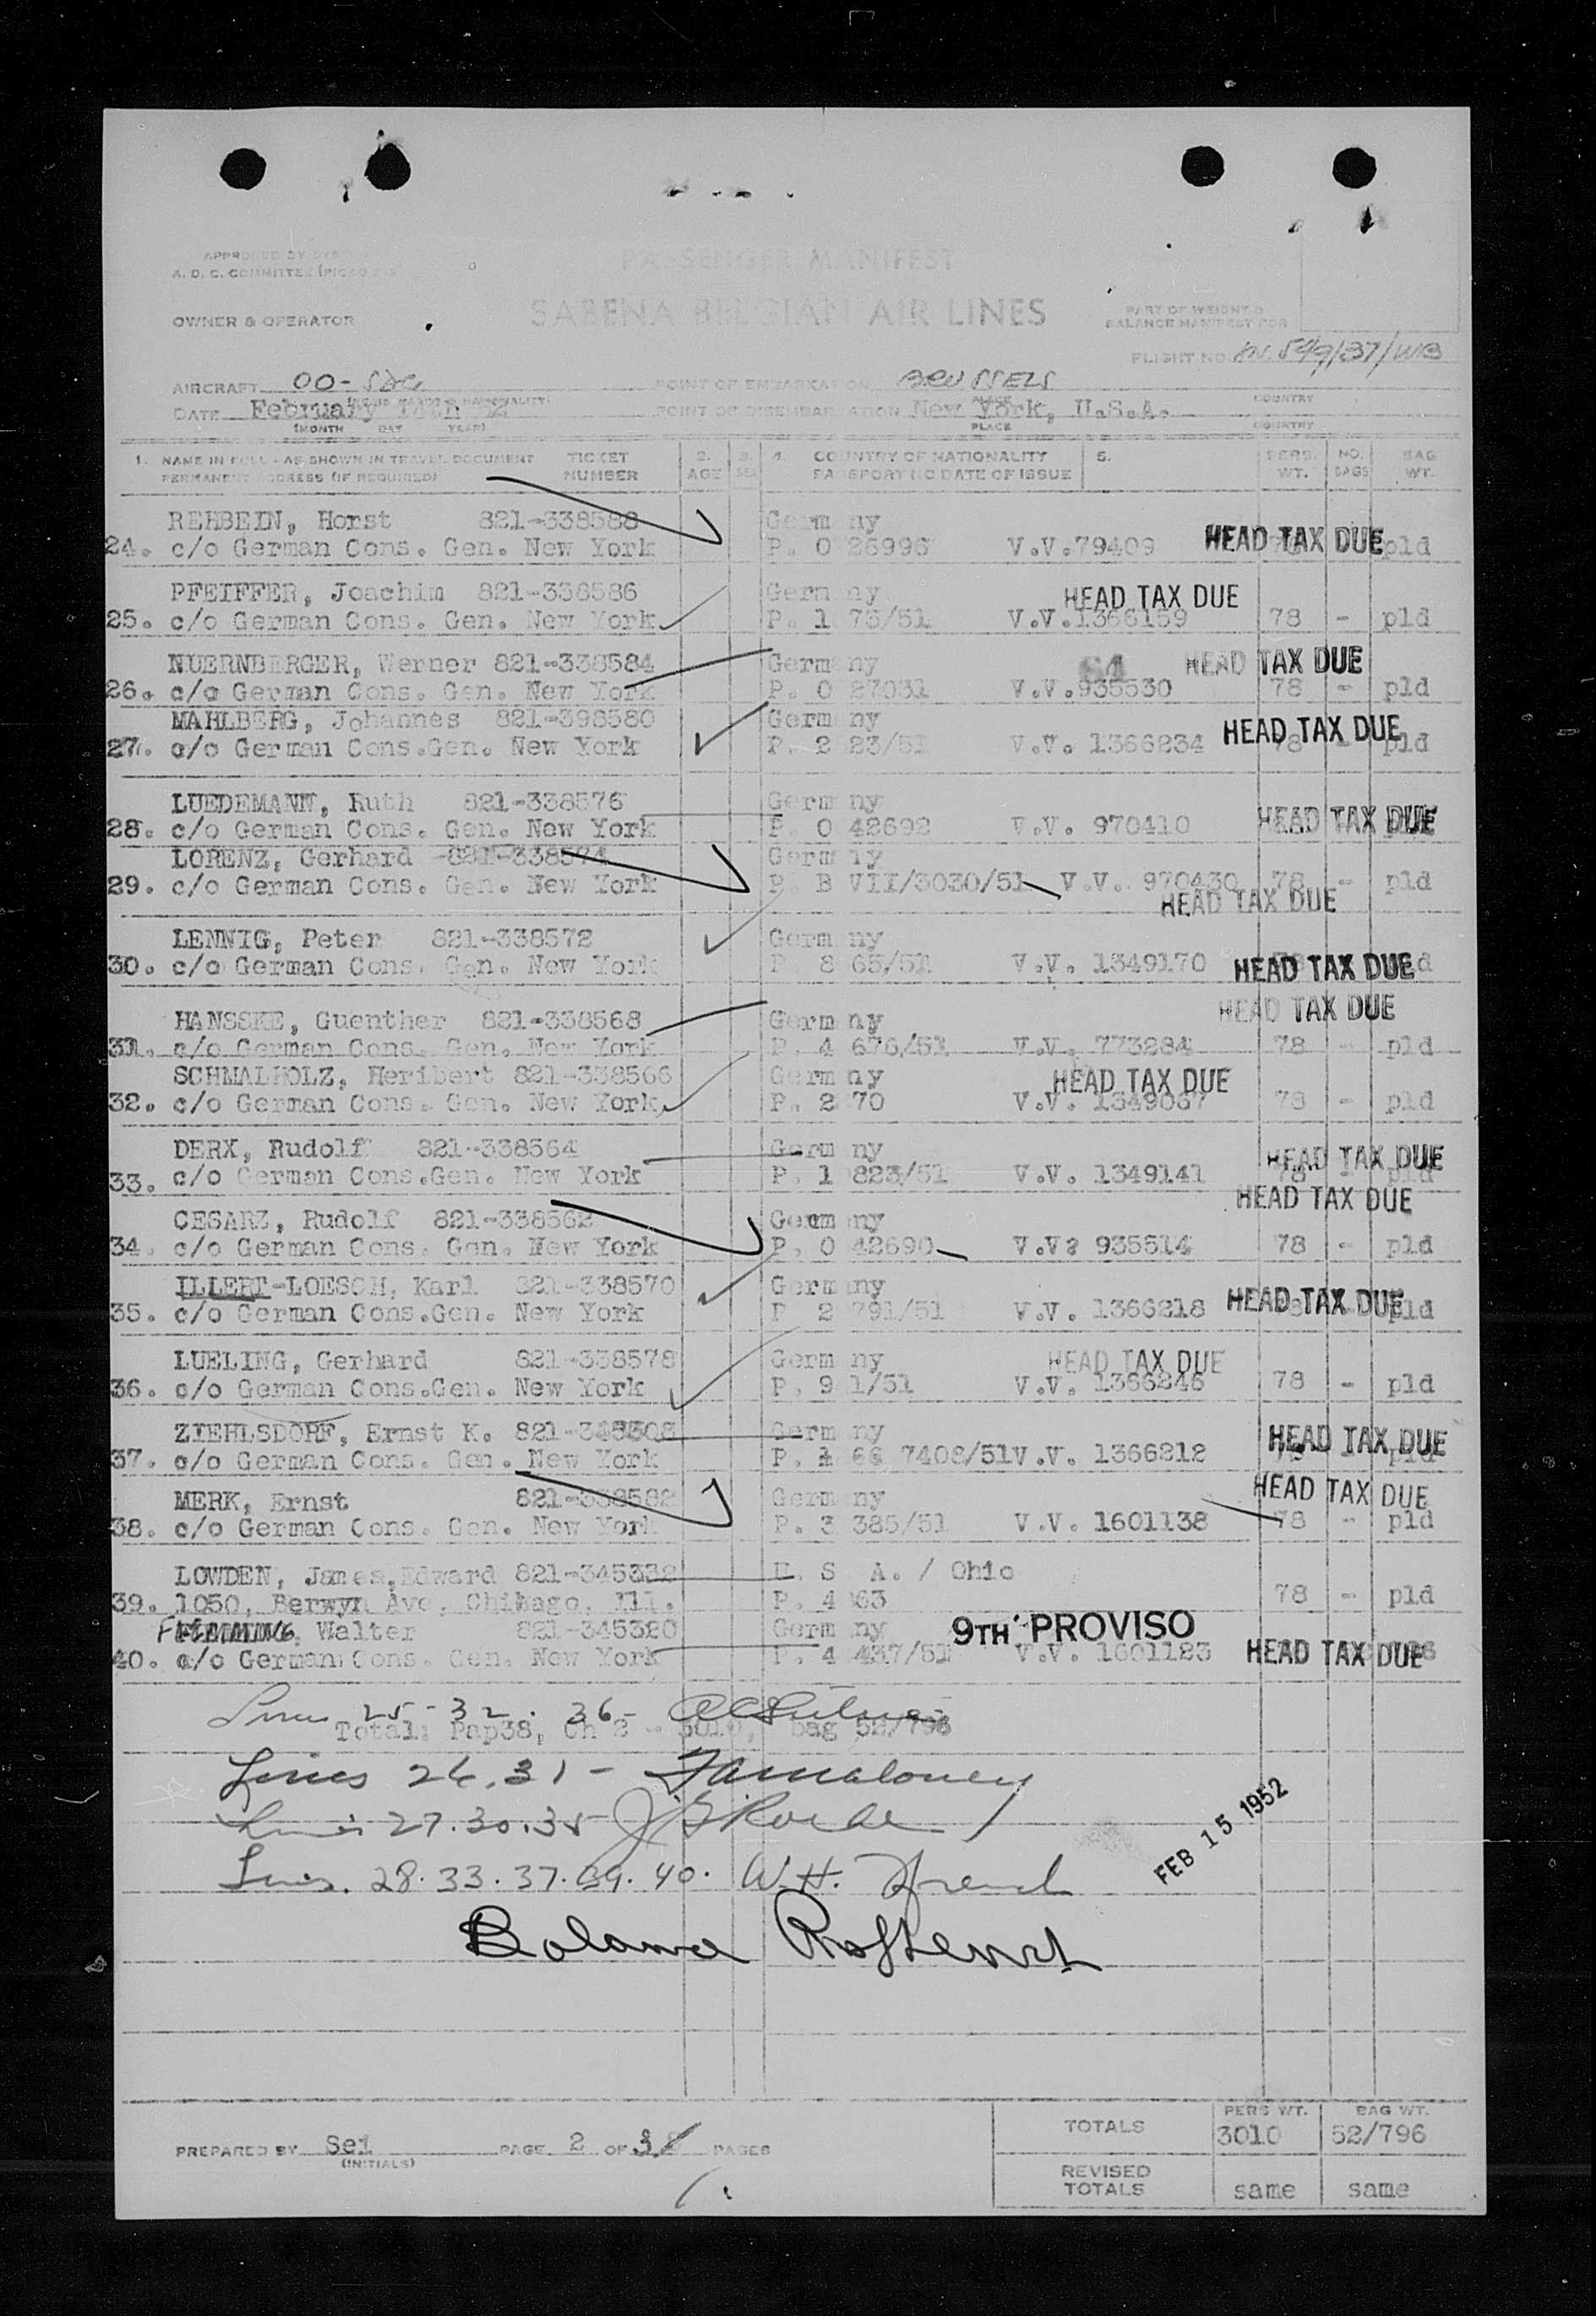 APPROVED BY
A. D. C. COMMITTEE
PASSENGER MANIFEST
SABENA BELGIAN AIR LINES
OWNER & OPERATOR
PART OF WEIGHT &
BALANCE MANIFEST FOR
FLIGHT NO. 549/37/WB
AIRCRAFT OO-
POINT OF EMBARKATION BRUSSELS
DATE February 14th 52
POINT OF DISEMBARKATION New York, U.S.A.
COUNTRY
(MONTH DAY YEAR)
PLACE
COUNTRY
1. NAME IN FULL - AS SHOWN IN TRAVEL DOCUMENT TICKET 2. 3. 4. COUNTRY OF NATIONALITY 5. PERS. NO. BAG
PERMANENT ADDRESS (IF REQUIRED) NUMBER AGE SEX PASSPORT NO DATE OF ISSUE WT. BAGS WT.
REHBEIN, Horst 821-338588 Germany
24. c/o German Cons. Gen. New York P. 0 26996 V.V.79409 HEAD TAX DUE pld
PFEIFFER, Joachim 821-338586 Germany HEAD TAX DUE
25. c/o German Cons. Gen. New York P. 1 73/51 V.V.1366159 78 - pld
NUERNBERGER, Werner 821-338584 Germany 64 HEAD TAX DUE
26. c/o German Cons. Gen. New York P. 0 27031 V.V.935530 78 - pld
MAHLBERG, Johannes 821-398580 Germany
27. c/o German Cons.Gen. New York P. 2 23/51 V.V. 1366234 HEAD TAX DUE 78 - pld
LUEDEMANN, Ruth 821-338576 Germany
28. c/o German Cons. Gen. New York P. 0 42692 V.V. 970410 HEAD TAX DUE
LORENZ, Gerhard 821-338574 Germany
29. c/o German Cons. Gen. New York P. B VII/3030/51 V.V. 970430 78 - pld
HEAD TAX DUE
LENNIG, Peter 821-338572 Germany
30. c/o German Cons. Gen. New York P. 8 65/51 V.V. 1349170 HEAD TAX DUE
HANSSKE, Guenther 821-338568 Germany HEAD TAX DUE
31. c/o German Cons. Gen. New York P. 4 676/51 V.V. 773284 78 - pld
SCHMALHOLZ, Heribert 821-338566 Germany HEAD TAX DUE
32. c/o German Cons. Gen. New York P. 2 70 V.V. 1349067 78 - pld
DERX, Rudolf 821-338564 Germany HEAD TAX DUE
33. c/o German Cons.Gen. New York P. 1 823/51 V.V. 1349141 78 - pld
CESARZ, Rudolf 821-338562 Germany HEAD TAX DUE
34. c/o German Cons. Gen. New York P. 0 42690 V.V? 935514 78 - pld
ILLERT-LOESCH, Karl 821-338570 Germany
35. c/o German Cons.Gen. New York P 2 791/51 V.V. 1366218 HEAD TAX DUE pld
LUELING, Gerhard 821-338578 Germany HEAD TAX DUE
36. c/o German Cons.Gen. New York P. 9 1/51 V.V. 1366246 78 - pld
ZIEHLSDORF, Ernst K. Germany HEAD TAX DUE
37. c/o German Cons. Gen. New York P. 66 7408/51V.V. 1366212
MERK, Ernst 821-338582 Germany HEAD TAX DUE
38. c/o German Cons. Gen. New York P. 3 385/51 V.V. 1601138 78 - pld
LOWDEN, James,Edward 821-345332 U. S A. / Ohio
39. 1050, Berwyn Ave, Chikago, Ill. P. 4 63 78 - pld
Walter 821-345320 Germany 9TH PROVISO
40. c/o German Cons. Gen. New York P. 4 437/51 V.V. 1601123 HEAD TAX DUE
Lines 25-32. 36-
Total: Pap38, Ch 2 - 3010, bag 52/796
Lines 26.31 - Maloney
Lines 27.30.35
Lines. 28.33.37.39.40. W.H. French
FEB 15 1952
PREPARED BY Sei PAGE 2 OF 3 PAGES
(INITIALS)
TOTALS PERS WT. 3010 BAG WT. 52/796
REVISED TOTALS same same